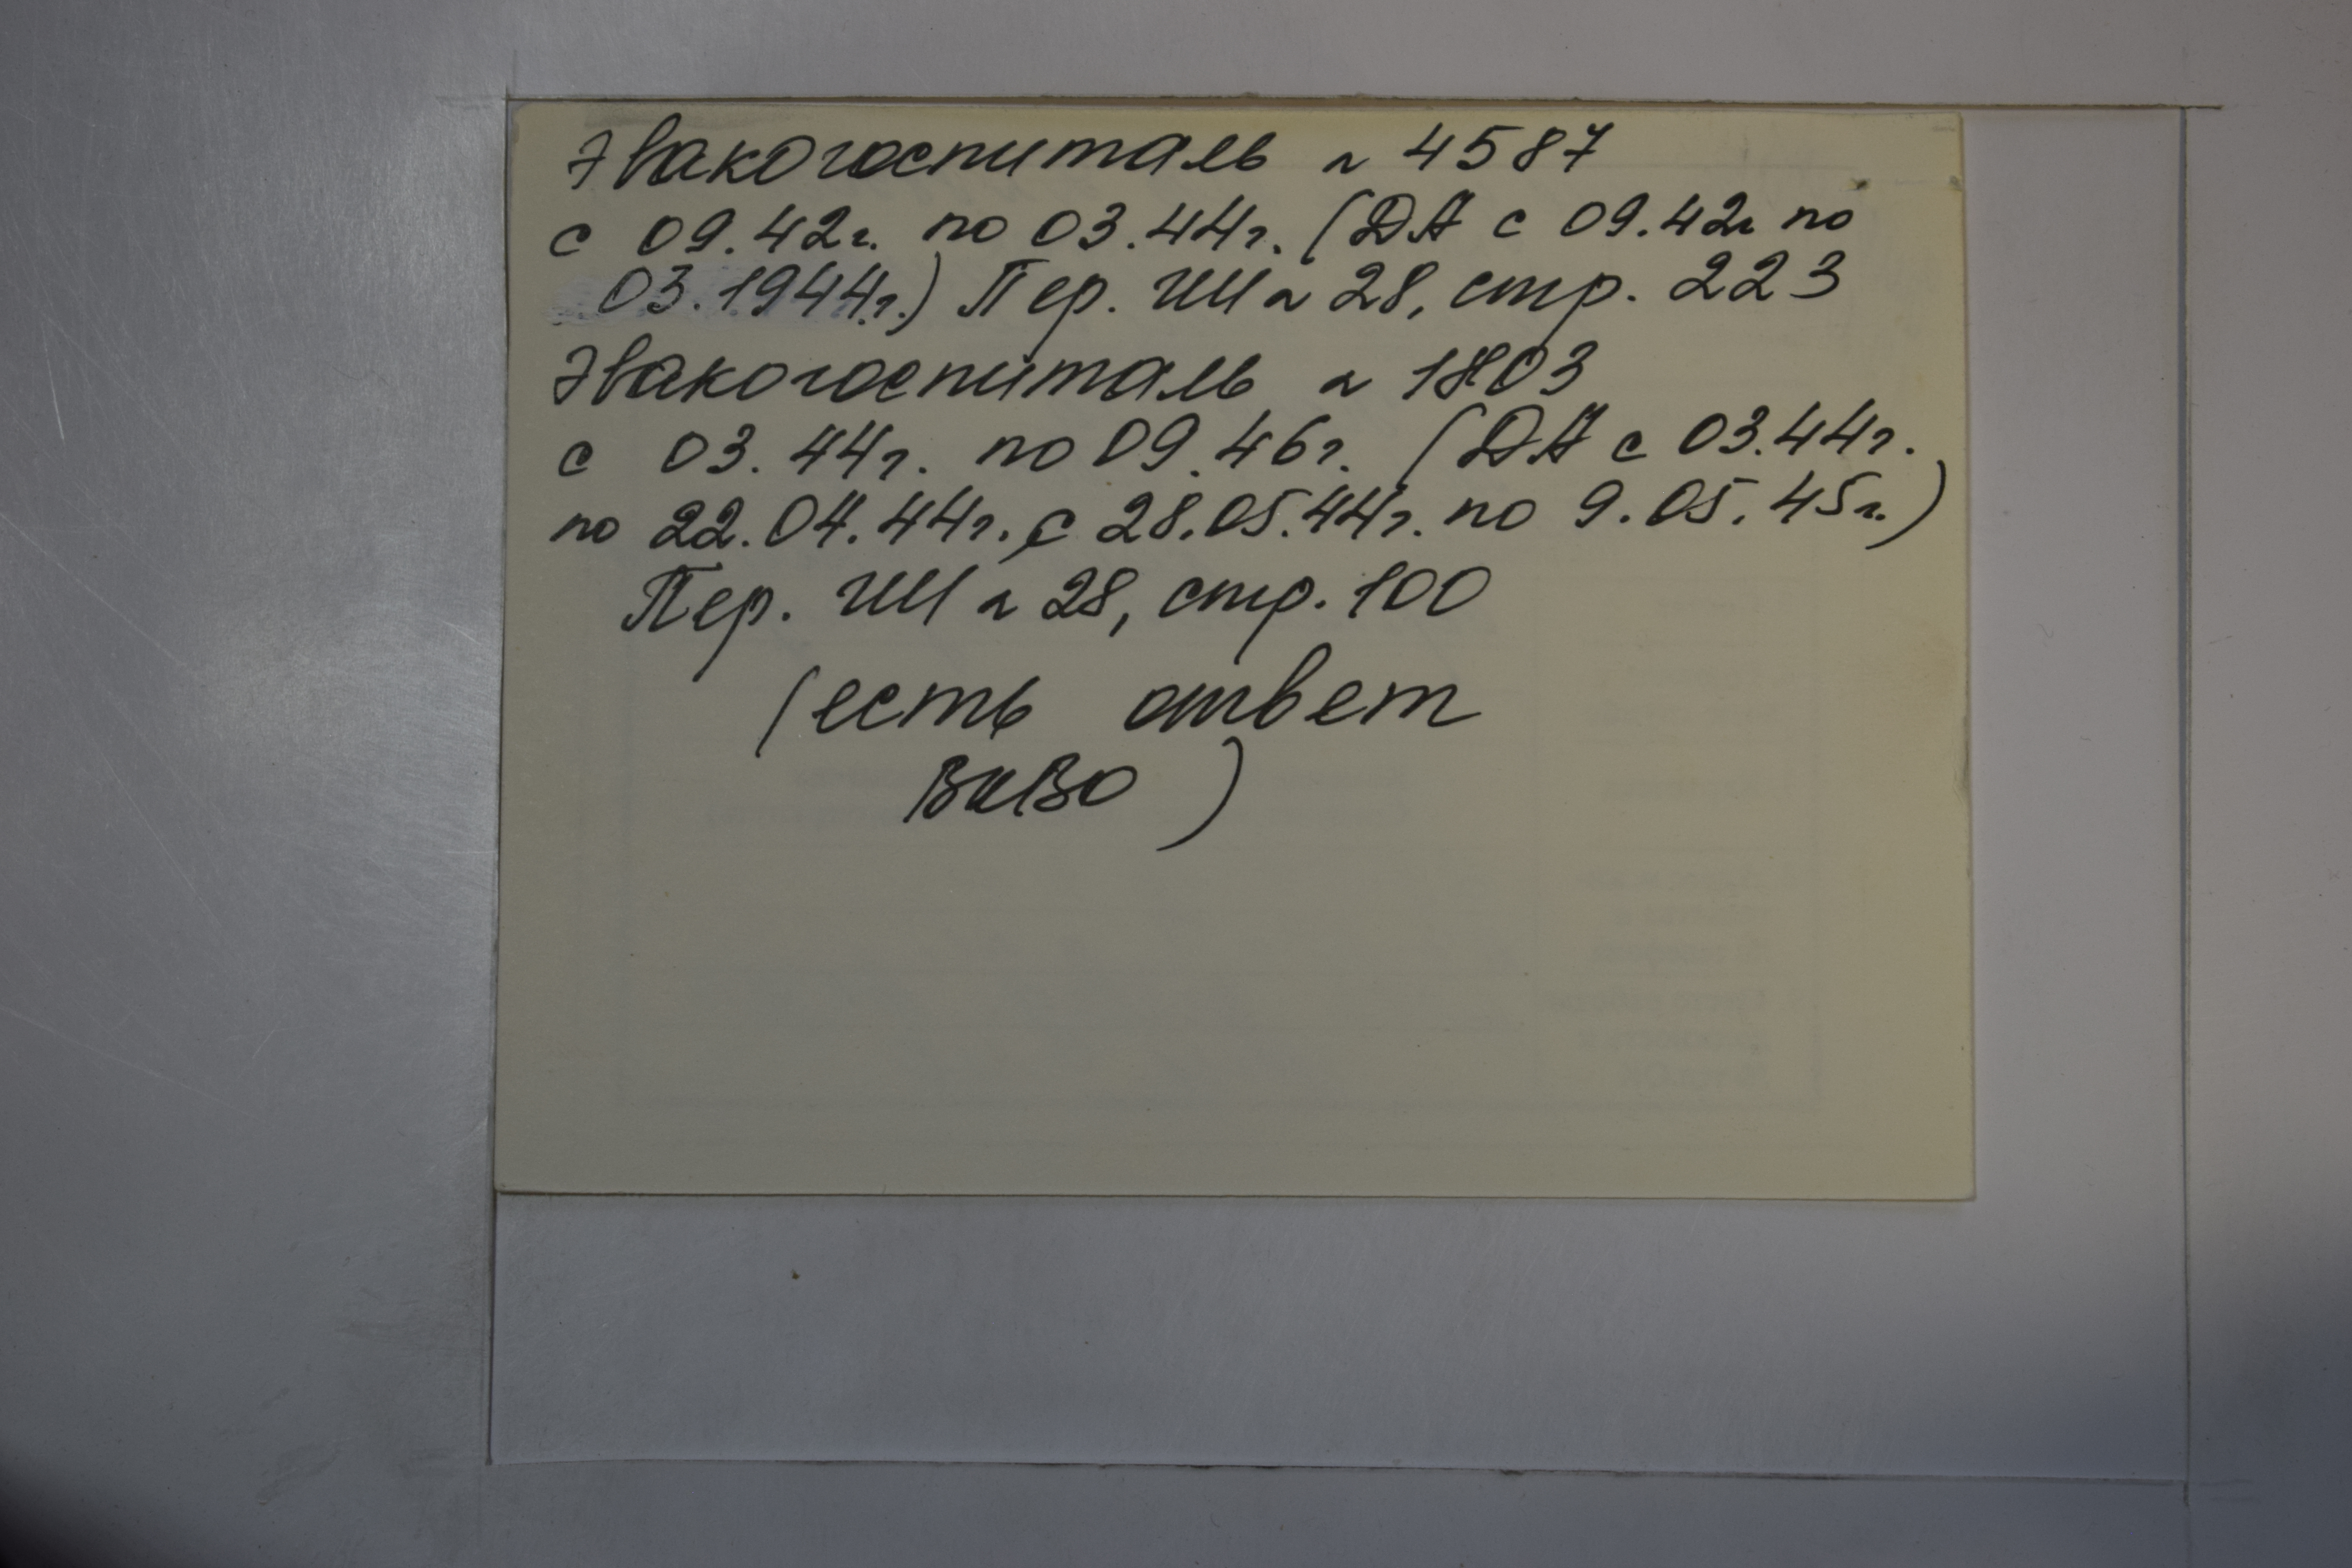 Эвакогоспиталь № 4587
с 09.42г. по 03.44г. (ДА с 09.42г по
03.1944г.) Пер. ГШ № 28, стр. 223
Эвакогоспиталь № 1803
с 03.44г. по 09.46г. (ДА с 03.44г.
по 22.04.44г., с 28.05.44г. по 9.05.45г.)
Пер. ГШ № 28, стр. 100
(есть ответ
)